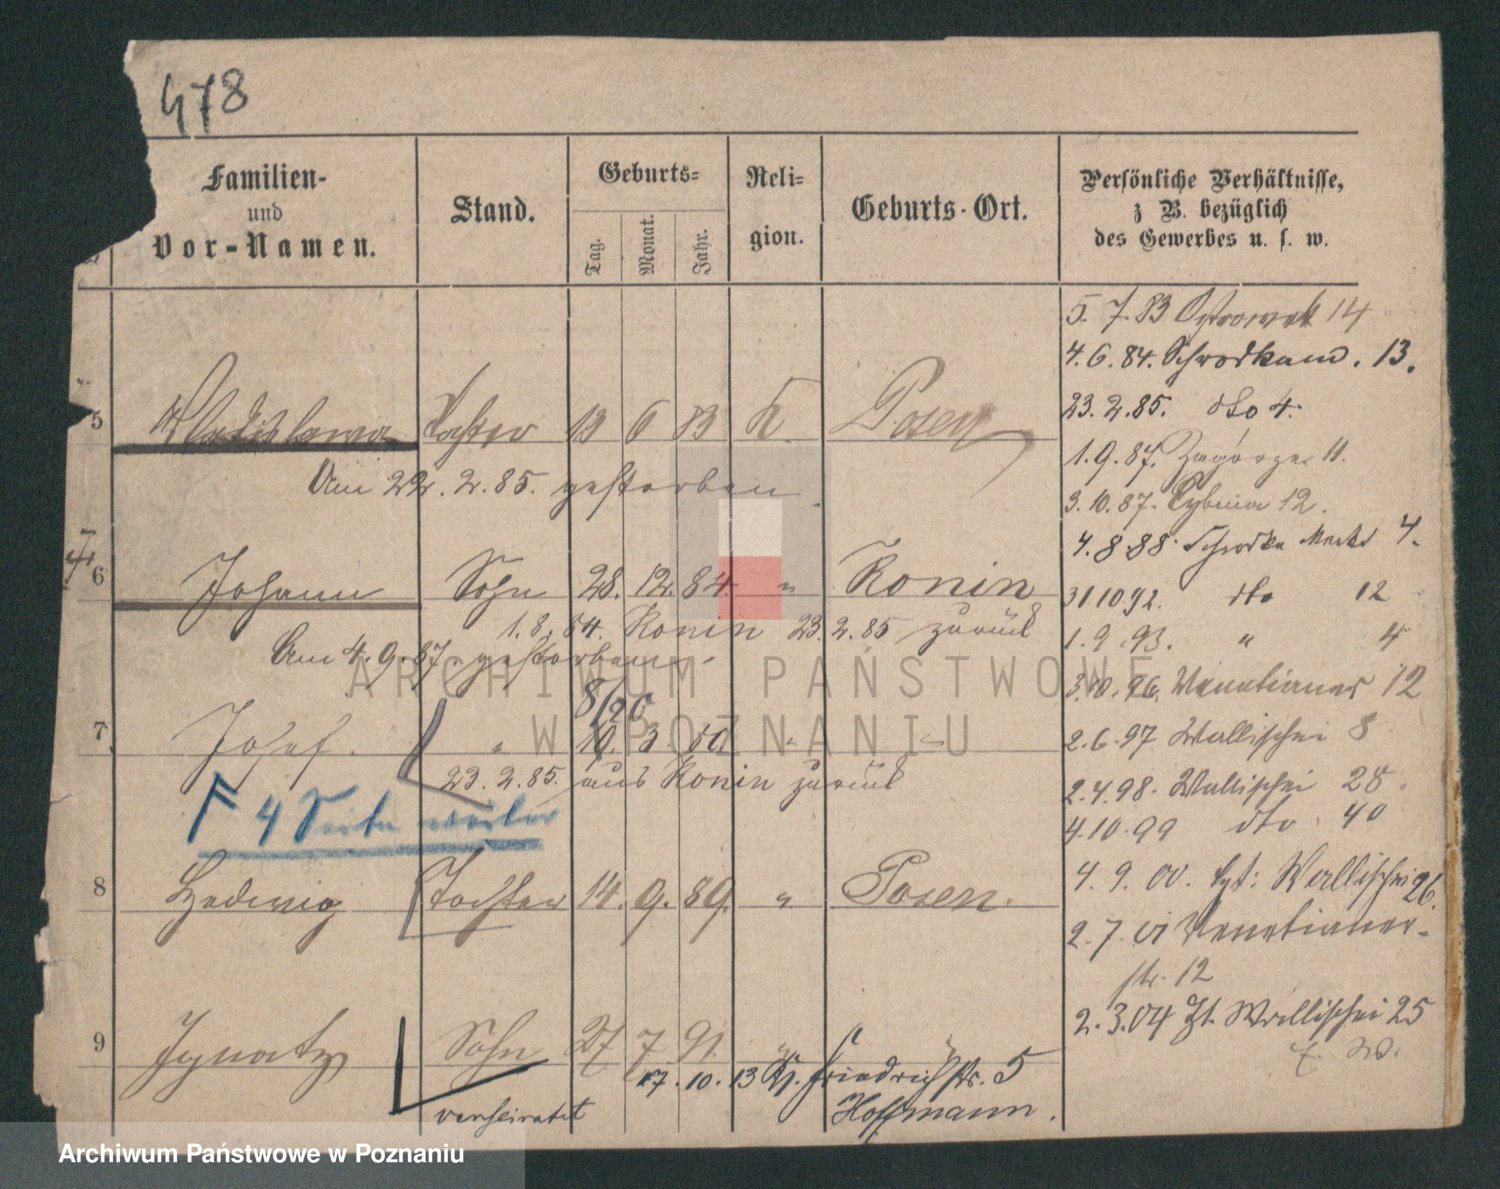 478
Familien-
und
Vor-Namen.
Stand.
Geburts-
Tag.
Monat.
Jahr.
Reli-
gion.
Geburts-Ort.
Persönliche Verhältnisse,
z B. bezüglich
des Gewerbes u. s. w.
5 Wladislawa Tochter 13 6 83 K. Posen
Am 22.2.85. gestorben.
6 Johann Sohn 28. 12. 84 " Konin
1.8.84. Konin 23.2.85 zurück
Am 4.9.87. gestorben.
8/20
7 Josef. " 19. 3. 80 " "
23.2.85. aus Konin zurück
F 4 Seite weiter
8 Hedwig Tochter 14. 9. 89. " Posen.
9 Ignatz Sohn 27 7 91. "
17.10.13 Friedrichstr. 5
verheiratet Hoffmann.
5.7.83 Ostrowek 14
4.6.84. Schrodkam. 13.
23.2.85. dto 4.
1.9.87. Zagorze 11.
3.10.87. Cybina 12.
4.8.88. Schrodka Markt 4.
31.10.92. dto 12
1.9.93. " 4
3.10.96. Venetianer 12
2.6.97 Wallischei 8
2.4.98. Wallischei 28.
4.10.99 dto 40
4.9.00. Wallischei 26.
2.7.01 Venetianer-
str. 12
2.3.04 Wallischei 25
ARCHIWUM PAŃSTWOWE
W POZNANIU
Archiwum Państwowe w Poznaniu